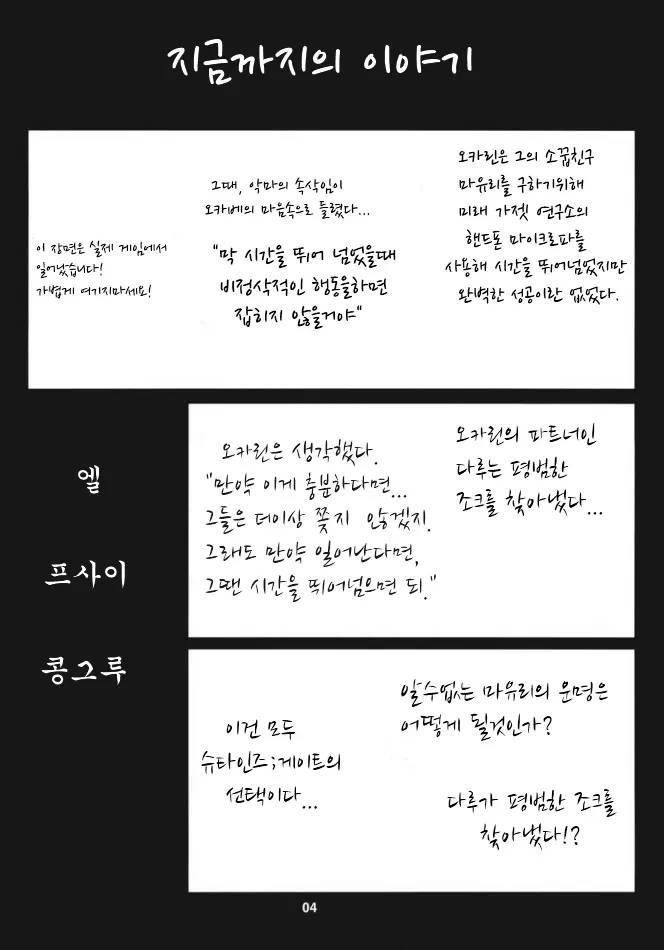 지금까지의 이야기
오카린은 그의 소꿉친구
마유리를 구하기위해
미래 가젯 연구소의
핸드폰 마이크로파를
사용해 시간을 뛰어넘었지만
완벽한 성공이란 없었다.
그때, 악마의 속삭임이
오카베의 마음속으로 들렸다...
"막 시간을 뛰어 넘었을때
비정삭적인 행동을하면
잡히지 않을거야"
이 장면은 실제 게임에서
일어났습니다!
가볍게 여기지마세요!
오카린의 파트너인
다루는 평범한
조크를 찾아냈다...
오카린은 생각했다.
"만약 이게 충분하다면...
그들은 더이상 쫓지 않겠지.
그래도 만약 일어난다면,
그땐 시간을 뛰어넘으면 되."
알수없는 마유리의 운명은
어떻게 될것인가?
다루가 평범한 조크를
찾아냈다!?
이건 모두
슈타인즈;게이트의
선택이다...
엘
프사이
콩그루
04